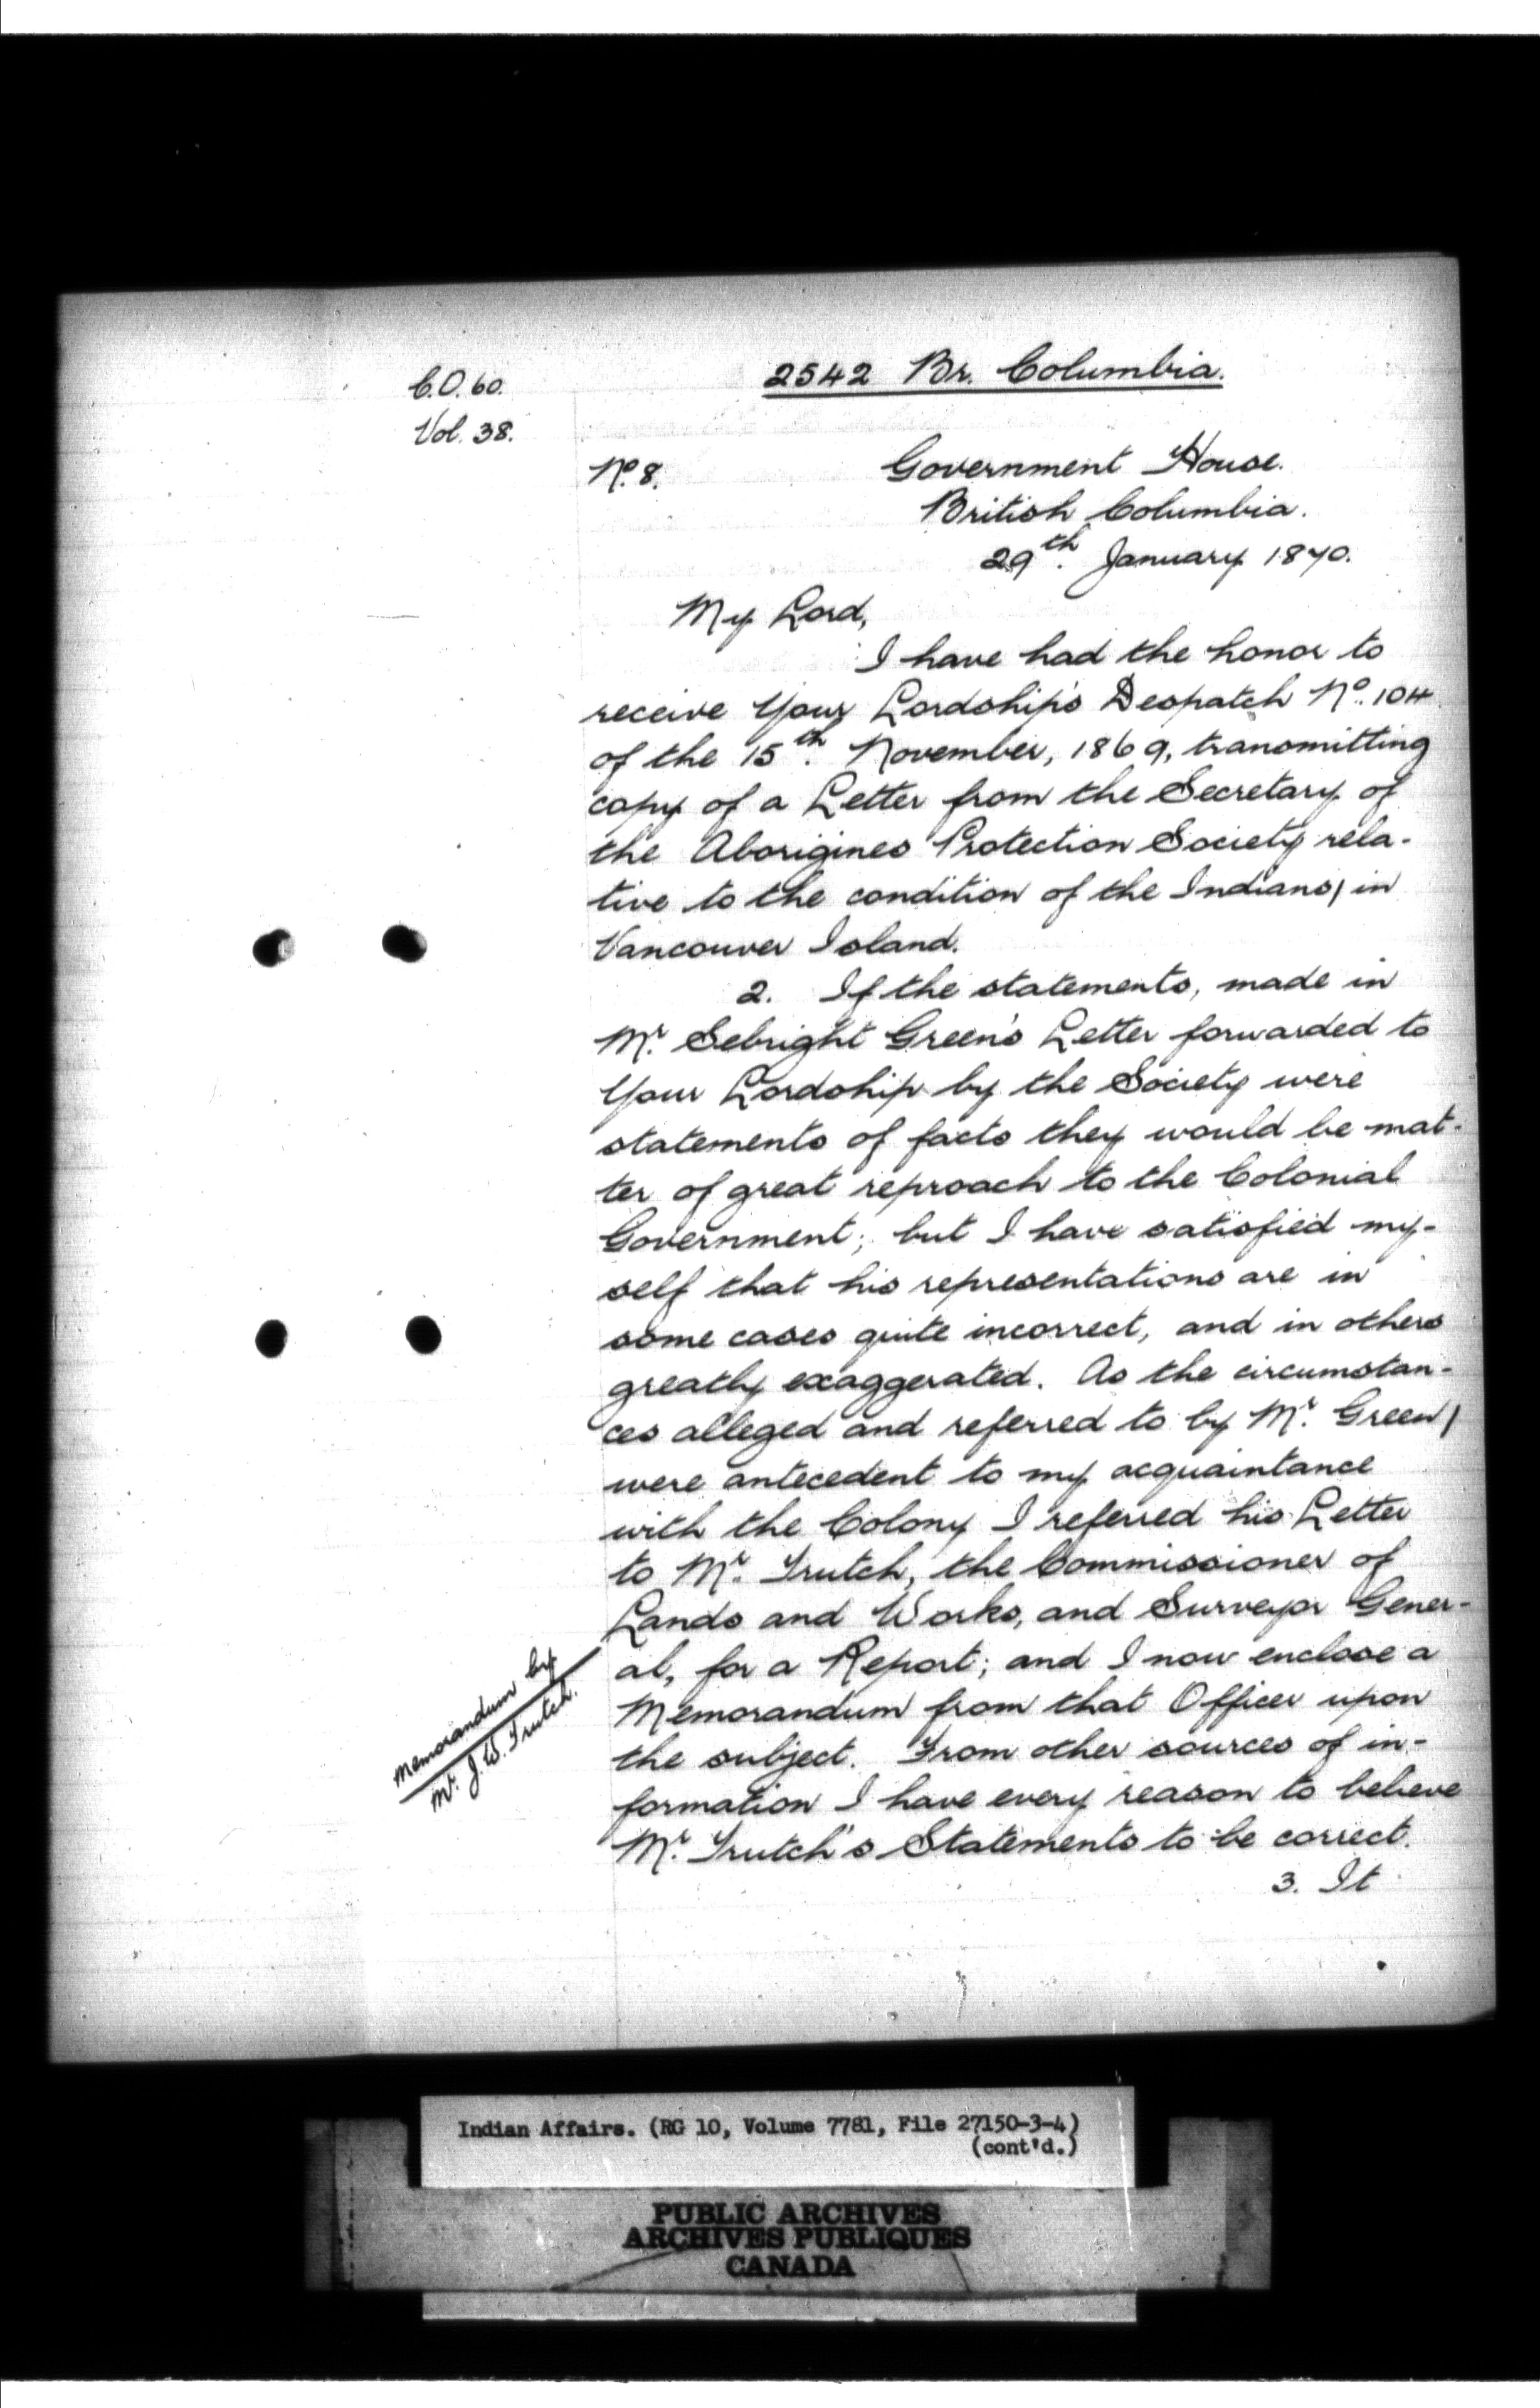 C.O. 60.
Vol. 38.
2542 Br. Columbia.
No. 8.
Government House.
British Columbia.
29th. January 1870.
My Lord,
I have had the honor to
receive Your Lordship's Despatch No. 104
of the 15th. November, 1869, transmitting
copy of a Letter from the Secretary of
the Aborigines Protection Society rela-
tive to the condition of the Indians, in
Vancouver Island.
2. If the statements, made in
Mr. Sebright Green's Letter forwarded to
Your Lordship by the Society were
statements of facts they would be mat-
ter of great reproach to the Colonial
Government; but I have satisfied my-
self that his representations are in
some cases quite incorrect, and in others
greatly exaggerated. As the circumstan-
ces alleged and referred to by Mr. Green,
were antecedent to my acquaintance
with the Colony I referred his Letter
to Mr. Trutch, the Commissioner of
Lands and Works, and Surveyor Gener-
al, for a Report; and I now enclose a
Memorandum from that Officer upon
the subject. From other sources of in-
formation I have every reason to believe
Mr. Trutch's Statements to be correct.
3. It
Memorandum by
Mr. J. W. Trutch.
Indian Affairs. (RG 10, Volume 7781, File 27150-3-4)
(cont'd.)
PUBLIC ARCHIVES
ARCHIVES PUBLIQUES
CANADA